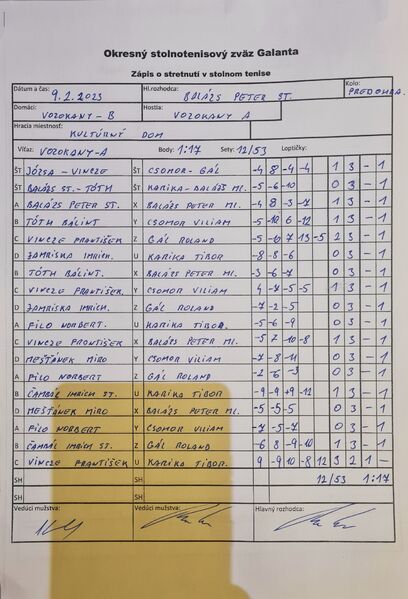 Okresný stolnotenisový zväz Galanta
Zápis o stretnutí v stolnom tenise
Dátum a čas: 9.2.2023 Hl.rozhodca: BALÁZS PETER ST. Kolo: PREDOHRA.
Domáci: VOZOKANY - B Hostia: VOZOKANY A
Hracia miestnosť: KULTÚRNÉ DOM
Víťaz: VOZOKANY-A Body: 1:17 Sety: 12/53 Loptičky:
ŠT JÓZSA - VINCZE ŠT CSOMOR - GÁL -4 8 -4 -4 1 3 - 1
ŠT BALÁZS ST. - TÓTH ŠT KARIKA - BALÁZS ML. -5 -6 -10 0 3 - 1
A BALÁZS PETER ST X BALÁZS PETER ML. -4 8 -3 -7 1 3 - 1
B TÓTH BÁLINT Y CSOMOR VILIAM -5 10 6 -12 1 3 - 1
C VINCZE FRANTIŠEK Z GÁL ROLAND -5 -10 7 13 -5 2 3 - 1
D JAMRIŠKA IMRICH. U KARIKA TIBOR -8 -8 -6 0 3 - 1
B TÓTH BÁLINT. X BALÁZS PETER ML. -3 -6 -7 0 3 - 1
C VINCZE FRANTIŠEK. Y CSOMOR VILIAM 4 -7 -5 -5 1 3 - 1
D JAMRIŠKA IMRICH. Z GÁL ROLAND -7 -2 -5 0 3 - 1
A FILO NORBERT. U KARIKA TIBOR. -5 -6 -9 0 3 - 1
C VINCZE FRONTIŠEK X BALÁZS PETER ML. -5 7 -10 -8 1 3 - 1
D MEŠŤÁNEK MIRO Y CSOMOR VILIAM -7 -8 -11 0 3 - 1
A FILO NORBERT Z GÁL ROLAND -2 -6 -3 0 3 - 1
B ČAMBÁL IMRICH ST. U KARIKA TIBOR -9 -9 +9 -12 1 3 - 1
D MEŠŤÁNEK MIRO X BALÁZS PETER ML. -5 -5 -5 0 3 - 1
A FILO NORBERT Y CSOMOR VILIAM -7 -5 -7 0 3 - 1
B ČAMBÁL IMRICH ST Z GÁL ROLAND -6 8 -9 -10 1 3 - 1
C VINCZE FRANTIŠEK U KARIKA TIBOR. 9 -9 10 -8 12 3 2 1 -
SH SH 12/53 1:17
SH SH
Vedúci mužstva: Vedúci mužstva: Hlavný rozhodca: